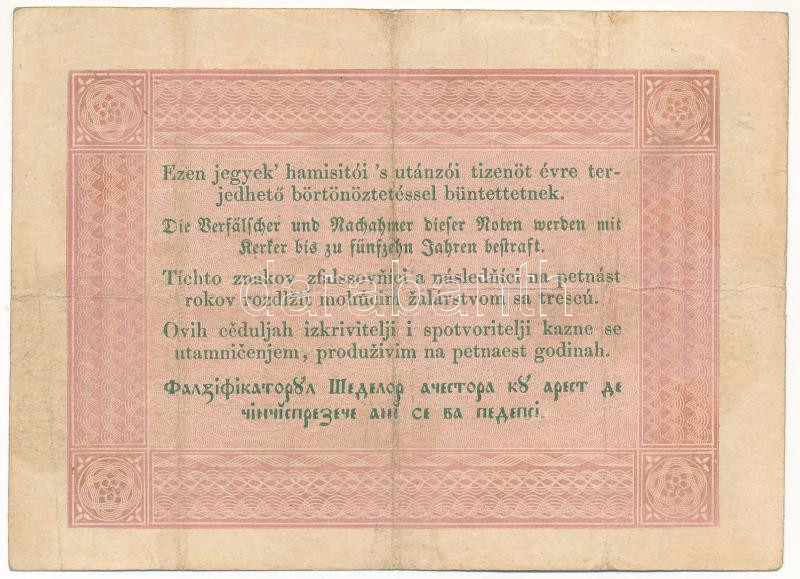 Ezen jegyek' hamisitói 's utánzói tizenöt évre ter-
jedhető börtönöztetéssel büntettetnek.
Die Verfälscher und Nachahmer dieser Noten werden mit
Kerker bis zu fünfzehn Jahren bestraft.
Tíchto znakov zfalssovňíci a následňíci na petnást
rokov rozdlžiť mohúcim žalárstvom sa trescú.
Ovih cěduljah izkrivitelji i spotvoritelji kazne se
utamničenjem, produživim na petnaest godinah.
Фалꙃіфікаторꙋл Шеделор ачестора кꙋ арест де
чінчїспрезече анї се ва педепсі.
darabanth